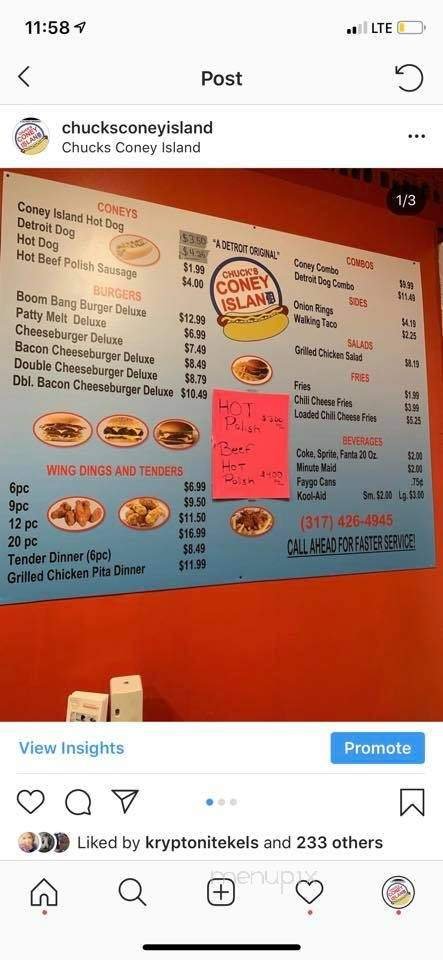 11:58
LTE
Post
chucksconeyisland
Chucks Coney Island
1/3
CONEYS
Coney Island Hot Dog $3.50
Detroit Dog
Hot Dog $1.99
Hot Beef Polish Sausage $4.00
BURGERS
Boom Bang Burger Deluxe $12.99
Patty Melt Deluxe $6.99
Cheeseburger Deluxe $7.49
Bacon Cheeseburger Deluxe $8.49
Double Cheeseburger Deluxe $8.79
Dbl. Bacon Cheeseburger Deluxe $10.49
WING DINGS AND TENDERS
6pc $6.99
9pc $9.50
12 pc $11.50
20 pc $16.99
Tender Dinner (6pc) $8.49
Grilled Chicken Pita Dinner $11.99
"A DETROIT ORIGINAL"
CHUCK'S
CONEY
ISLAND
HOT
Polish
Beef
HOT
Polish $4.00
COMBOS
Coney Combo $9.99
Detroit Dog Combo $11.49
SIDES
Onion Rings $4.19
Walking Taco $2.25
SALADS
Grilled Chicken Salad $8.19
FRIES
Fries $1.99
Chili Cheese Fries $3.99
Loaded Chili Cheese Fries $5.25
BEVERAGES
Coke, Sprite, Fanta 20 Oz. $2.00
Minute Maid $2.00
Faygo Cans .75¢
Kool-Aid Sm. $2.00 Lg. $3.00
(317) 426-4945
CALL AHEAD FOR FASTER SERVICE!
View Insights
Promote
Liked by kryptonitekels and 233 others
menupix